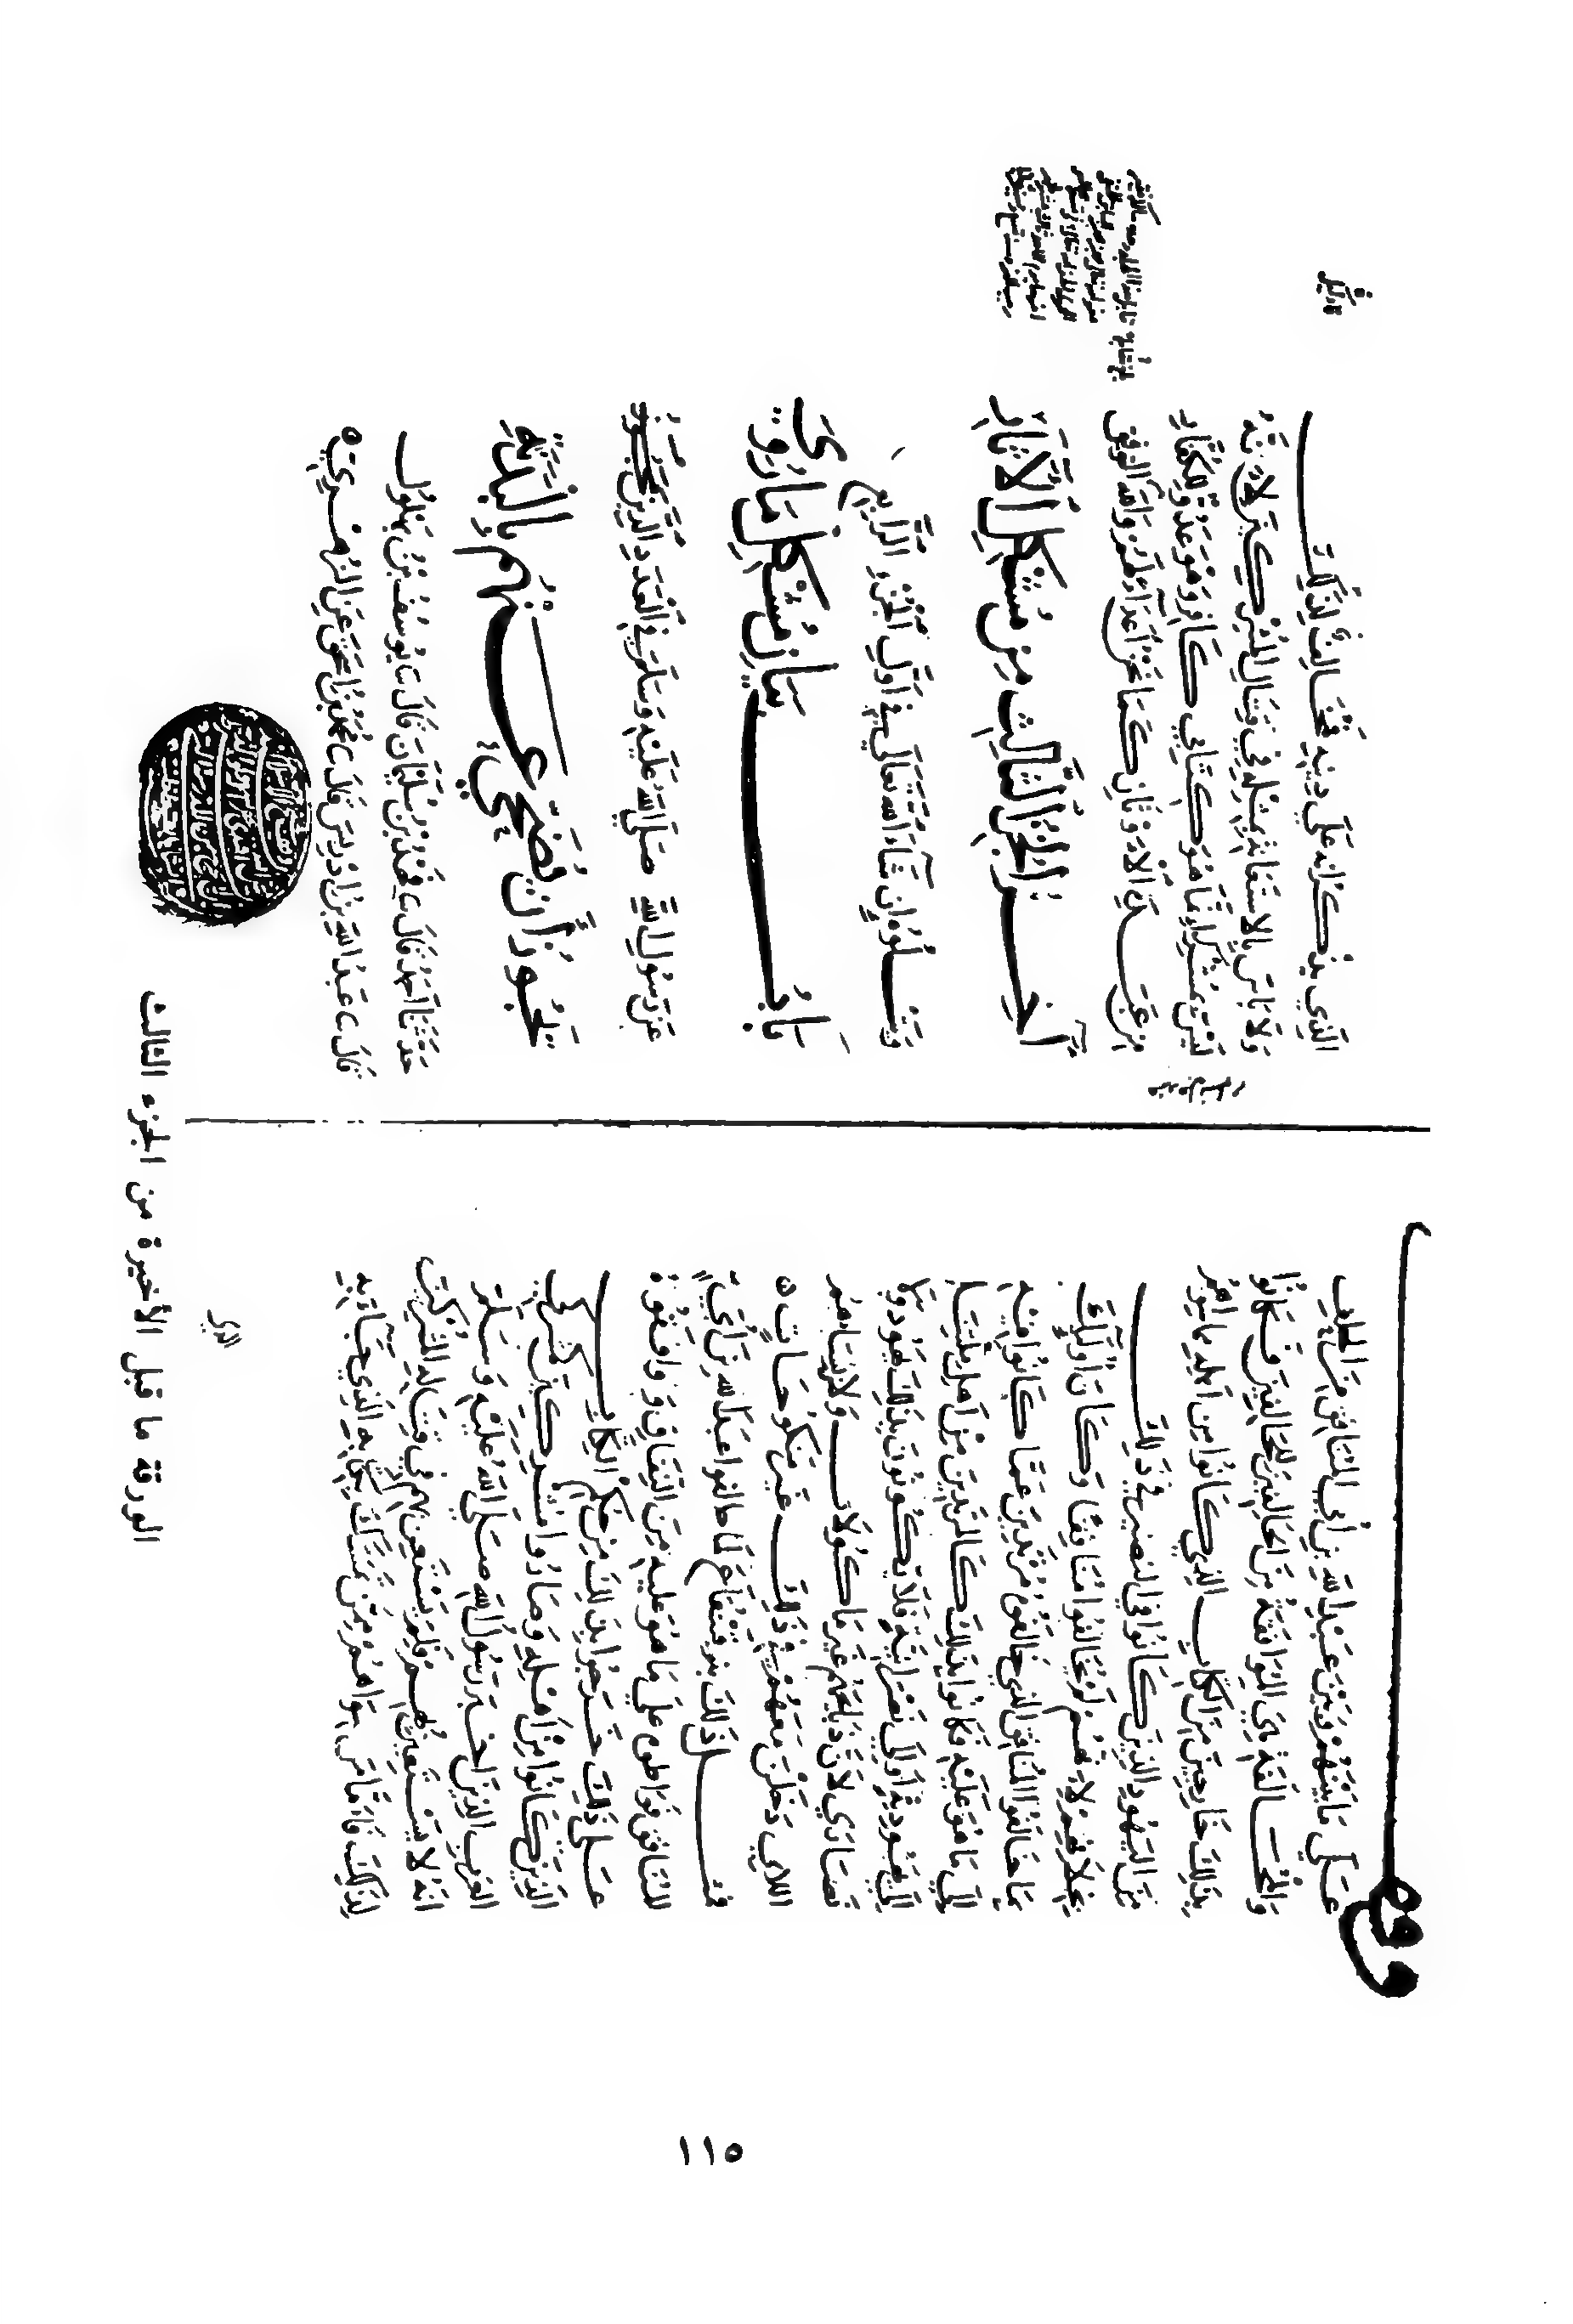 وقف
على ما بينهم وبين عبد الله بن أبي المنافق من الحلف
الموافقة من الحالفين للمحالفين فكانوا
بذلك خارجين من الكتاب الذي كانوا من أهله مما سواهم
من اليهود الذين كانوا في النضير في ذلك
بخلافهم لأنهم لم يحالفوا منافقا وكان أولئك
بما حالفوا المنافق الذي حالفوه مرتدين عما كانوا فيه
إلى ما هو عليه فكانوا بذلك كالمرتدين من أهل ملتنا
إلى يهودية أو إلى نصرانية فلا يكونون بذلك يهود ولا
نصارى لأن ذبائحهم غير مأكولات ولأن نساءهم
اللاتي دخلن معهم في ذلك غير منكوحات
فمثل ذلك بنو قينقاع لما حالفوا عبد الله بن أبي
المنافق فواطوه على ما هو عليه من النفاق ووافقوه
على ذلك خرجوا بذلك من حكم الكتاب
الذين كانوا من أهله وصاروا مشركين كمشركي
العرب الذين أخبر رسول الله صلى الله عليه وسلم
أنه لا يستعين بهم فلم يستعن بهم في قتاله المشركين
لذلك فأما من سواهم ممن تمسك بكتابه الذي جاء به
الذي
الذي يذكر أنه على دينه فمخالف لذلك
ولا بأس بالاستعانة بمثله في قتال المشركين لأنه
ليس بمشرك إنما هو كتابي كافر وهو عدو للكفار
من عبدة الأوثان كما نحن أعداء لهم والله الموفق
آخر الجزء الثالث من مشكل الآثار
ويتلوه إن شاء الله تعالى في أول الجزء الرابع
باب بيان مشكل ما روي
عن رسول الله صلى الله عليه وسلم في العدد الذين
يجوز أن يضحى عنهم بالبدنة
حدثنا أحمد قال ثنا فهد بن سليمان قال ثنا يوسف بن بهلول
قال ثنا عبد الله بن إدريس قال ثنا محمد بن إسحق عن الزهري
الورقة ما قبل الأخيرة من الجزء الثالث
١١٥